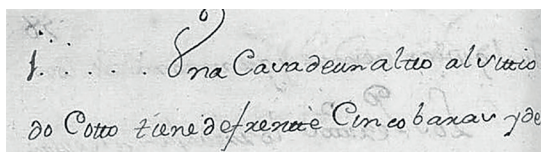 1. . . . . . Una Casa de un alto al sittio
do Cotto tiene de frentte Cinco baras y de